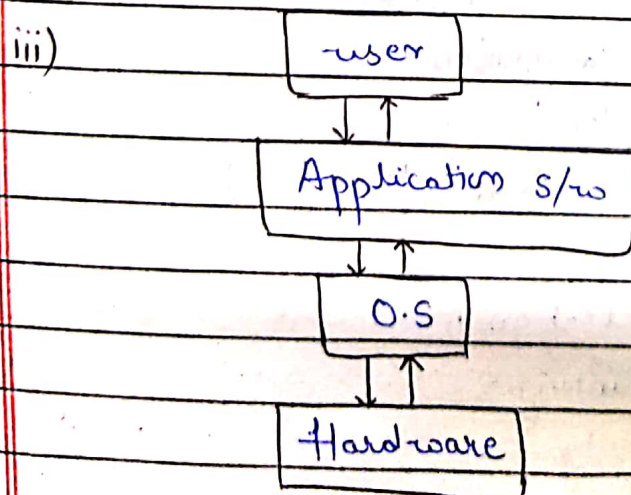 iii)
user
Application s/w
O.S
Hardware